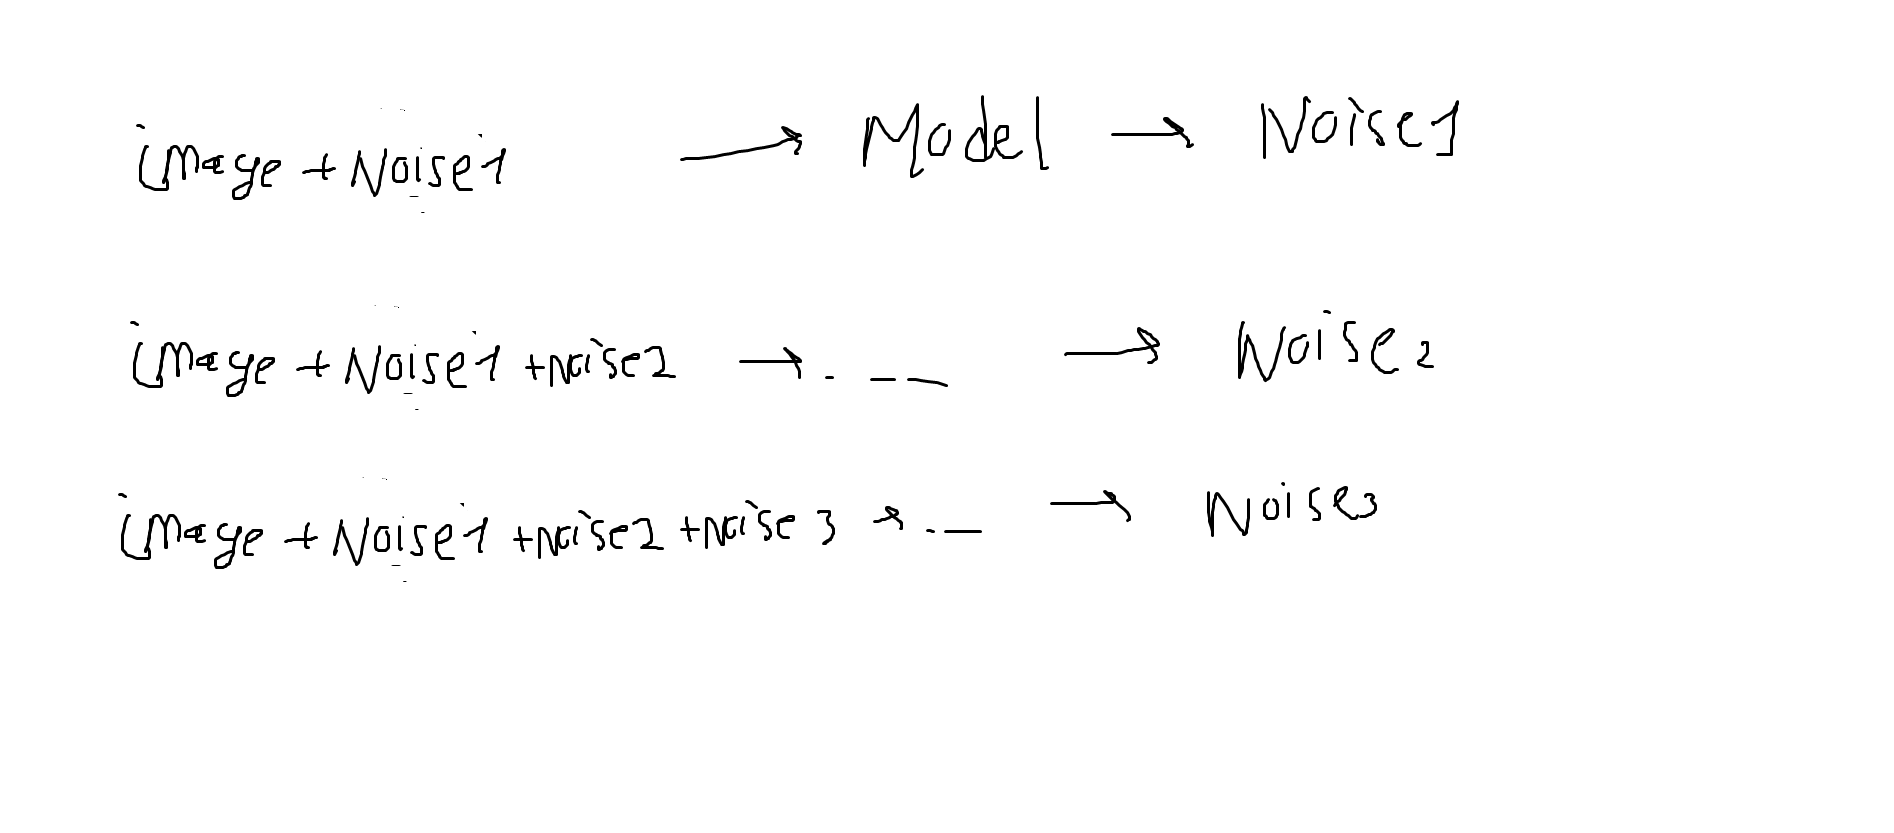 image + Noise1 → Model → Noise1
image + Noise1 + noise2 → . - - - → Noise2
image + Noise1 + noise2 + noise 3 → . - → Noise3